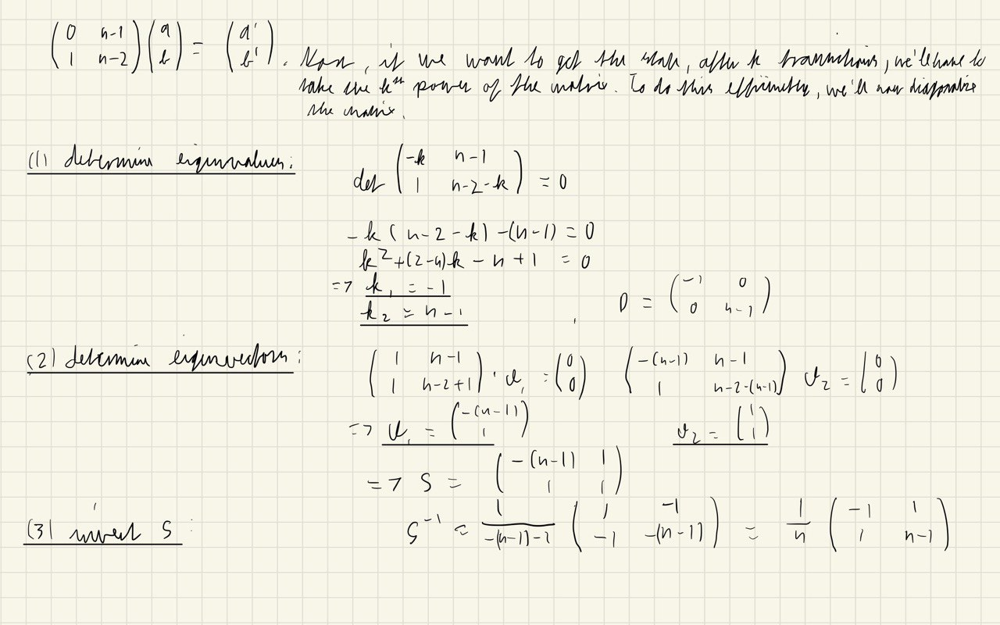 (0 n-1; 1 n-2)(a; b) = (a'; b'). Now, if we want to get the state, after k transitions, we'll have to
take the k^th power of the matrix. To do this efficiently, we'll now diagonalize
the matrix.
(1) determine eigenvalues:
det (-k n-1; 1 n-2-k) = 0
-k(n-2-k) -(n-1) = 0
k² + (2-n)k - n + 1 = 0
=> k₁ = -1
k₂ = n-1
D = (-1 0; 0 n-1)
(2) determine eigenvectors:
(1 n-1; 1 n-2+1) · v₁ = (0; 0) (-(n-1) n-1; 1 n-2-(n-1)) v₂ = (0; 0)
=> v₁ = (-(n-1); 1) v₂ = (1; 1)
=> S = (-(n-1) 1; 1 1)
(3) invert S:
S⁻¹ = 1/(-(n-1)-1) (1 -1; -1 -(n-1)) = 1/n (-1 1; 1 n-1)